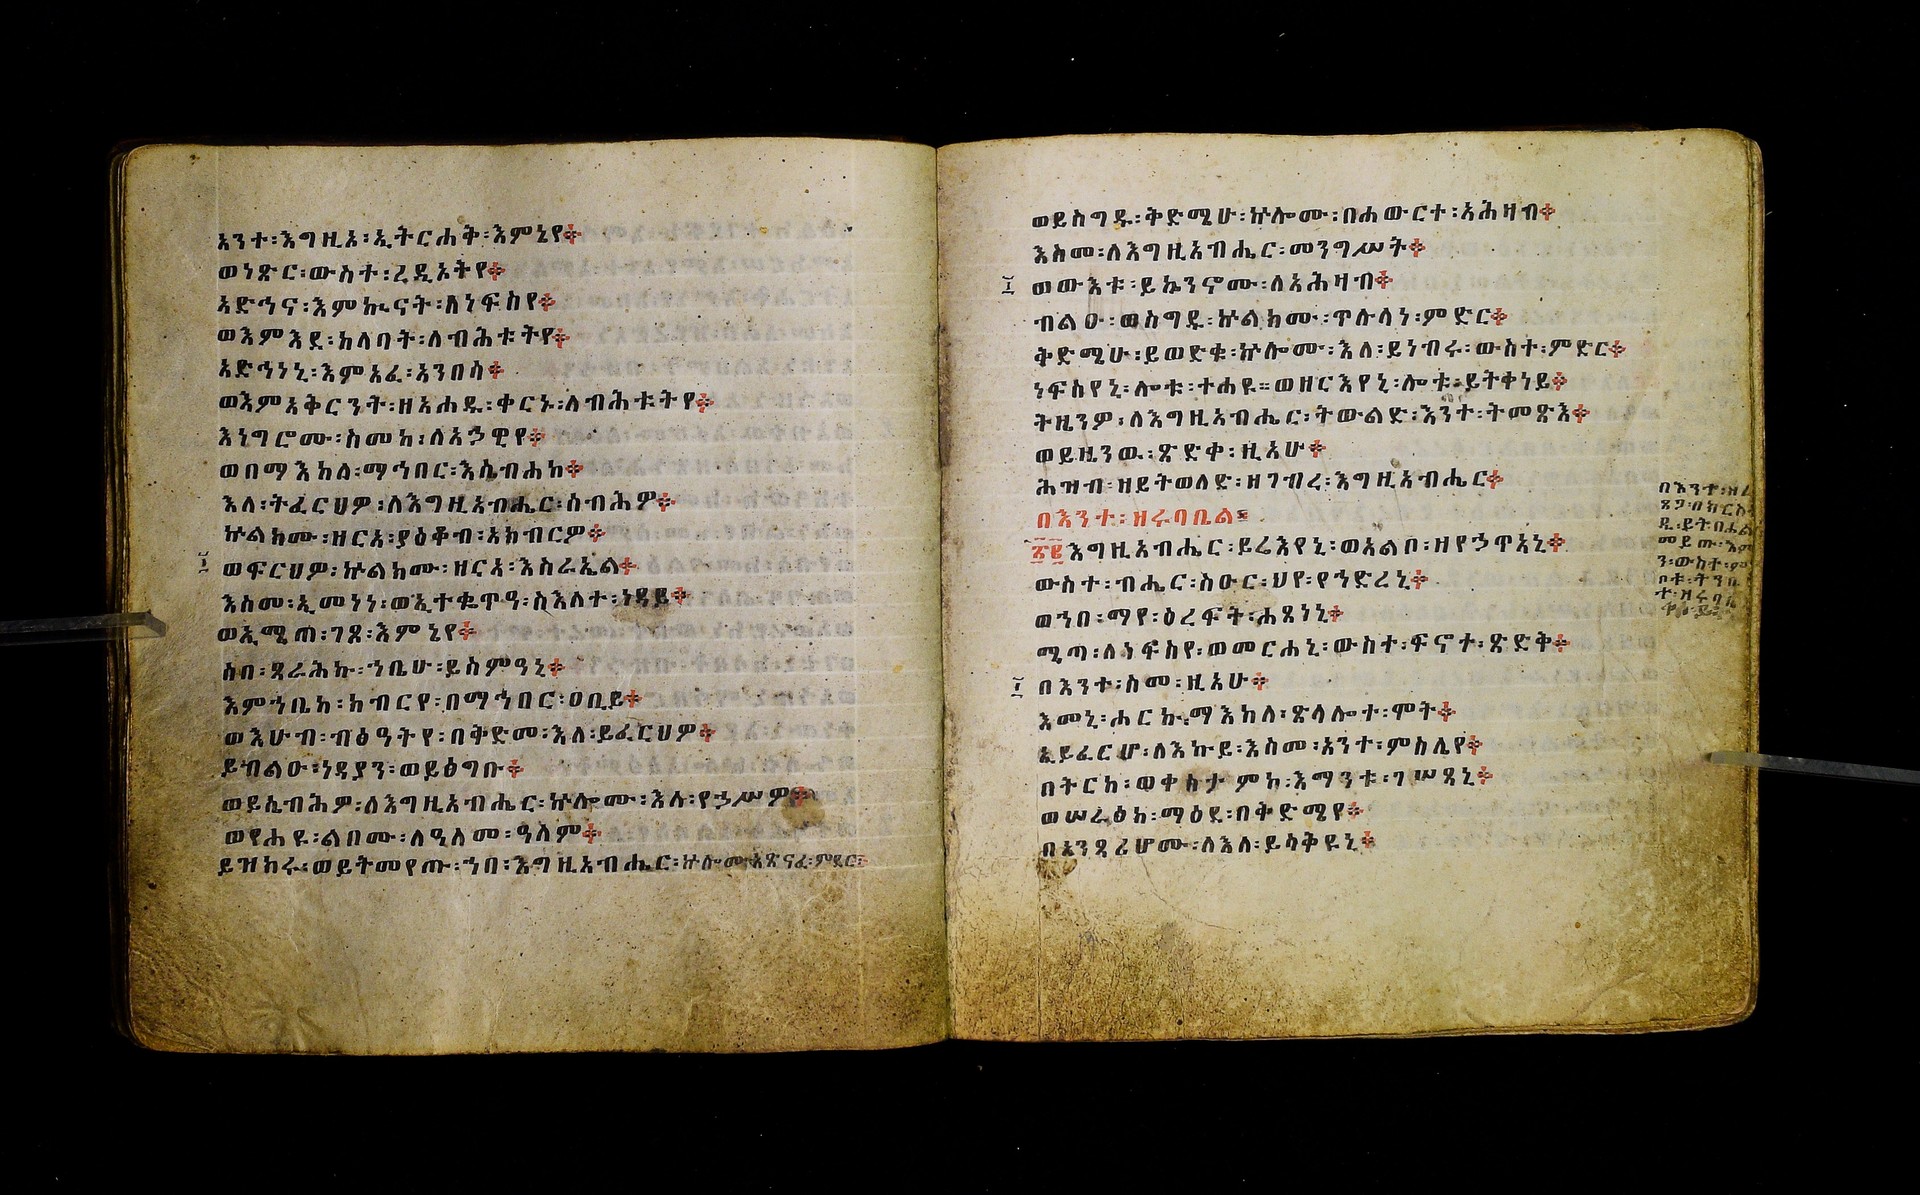 አንተ፡እግዚአ፡ኢትርሐቅ፡እምኔየ፨
ወነጽር፡ውስተ፡ረዲኦትየ፨
አድኅና፡እምኲናት፡ለነፍስየ፨
ወእምእደ፡ከለባት፡ለብሕቱትየ፨
አድኅነኒ፡እምአፈ፡አንበሳ፨
ወእምአቅርንት፡ዘአሐዱ፡ቀርኑ፡ለብሕቱትየ፨
እነግሮሙ፡ስመከ፡ለአኃዊየ፨
ወበማእከለ፡ማኅበር፡እሴብሐከ፨
እለ፡ትፈርህዎ፡ለእግዚአብሔር፡ሰብሕዎ፨
ኵልክሙ፡ዘርአ፡ያዕቆብ፡አክብርዎ፨
ወፍርህዎ፡ኵልክሙ፡ዘርአ፡እስራኤል፨
እስመ፡ኢመነነ፡ወኢተቈጥዓ፡ስእለተ፡ነዳይ፨
ወኢሜጠ፡ገጸ፡እምኔየ፨
ሶበ፡ጸራሕኩ፡ኀቤሁ፡ይሰምዓኒ፨
እምኀቤከ፡ክብርየ፡በማኅበር፡ዐቢይ፨
ወእሁብ፡ብፅዓትየ፡በቅድመ፡እለ፡ይፈርህዎ፨
ይብልዑ፡ነዳያን፡ወይፅግቡ፨
ወይሴብሕዎ፡ለእግዚአብሔር፡ኵሎሙ፡እለ፡የኃሥዎ፨
ወየሐዩ፡ልቦሙ፡ለዓለመ፡ዓለም፨
ይዝከሩ፡ወይትመየጡ፡ኀበ፡እግዚአብሔር፡ኵሎሙ፡አጽናፈ፡ምድር፨
ወይስግዱ፡ቅድሜሁ፡ኵሎሙ፡በሐውርተ፡አሕዛብ፨
እስመ፡ለእግዚአብሔር፡መንግሥት፨
ወውእቱ፡ይኴንኖሙ፡ለአሕዛብ፨
ብልዑ፡ወስግዱ፡ኵልክሙ፡ጥሉላነ፡ምድር፨
ቅድሜሁ፡ይወድቁ፡ኵሎሙ፡እለ፡ይነብሩ፡ውስተ፡ምድር፨
ነፍስየኒ፡ሎቱ፡ተሐዩ።ወዘርእየኒ፡ሎቱ፡ይትቀነይ፨
ትዜንዎ፡ለእግዚአብሔር፡ትውልድ፡እንተ፡ትመጽእ፨
ወይዜንዉ፡ጽድቀ፡ዚአሁ፨
ሕዝብ፡ዘይትወለድ፡ዘገብረ፡እግዚአብሔር፨
በእንተ፡ዘሩባቤል።
፳፪እግዚአብሔር፡ይሬእየኒ፡ወአልቦ፡ዘየኃጥአኒ፨
ውስተ፡ብሔር፡ስዑር፡ህየ፡የኀድረኒ፨
ወኀበ፡ማየ፡ዕረፍት፡ሐጸነኒ፨
ሜጣ፡ለነፍስየ፡ወመርሐኒ፡ውስተ፡ፍኖተ፡ጽድቅ፨
በእንተ፡ስመ፡ዚአሁ፨
እመኒ፡ሖርኩ፡ማእከለ፡ጽላሎተ፡ሞት፨
ኢይፈርሆ፡ለእኩይ፡እስመ፡አንተ፡ምስሌየ፨
በትርከ፡ወቀስታምከ፡እማንቱ፡ገሠጻኒ፨
ወሠራዕከ፡ማዕደ፡በቅድሜየ፨
በአንጻሪሆሙ፡ለእለ፡ይሳቅዩኒ፨
በእንተ፡ዘ